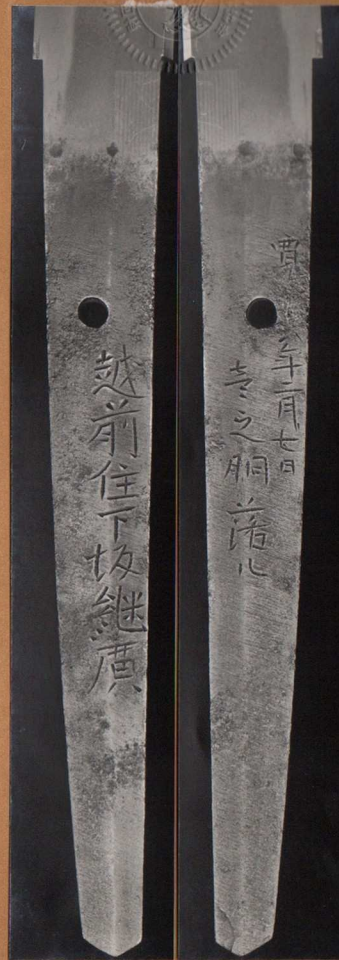 越前住下坂継廣
年二月七日
之胴落